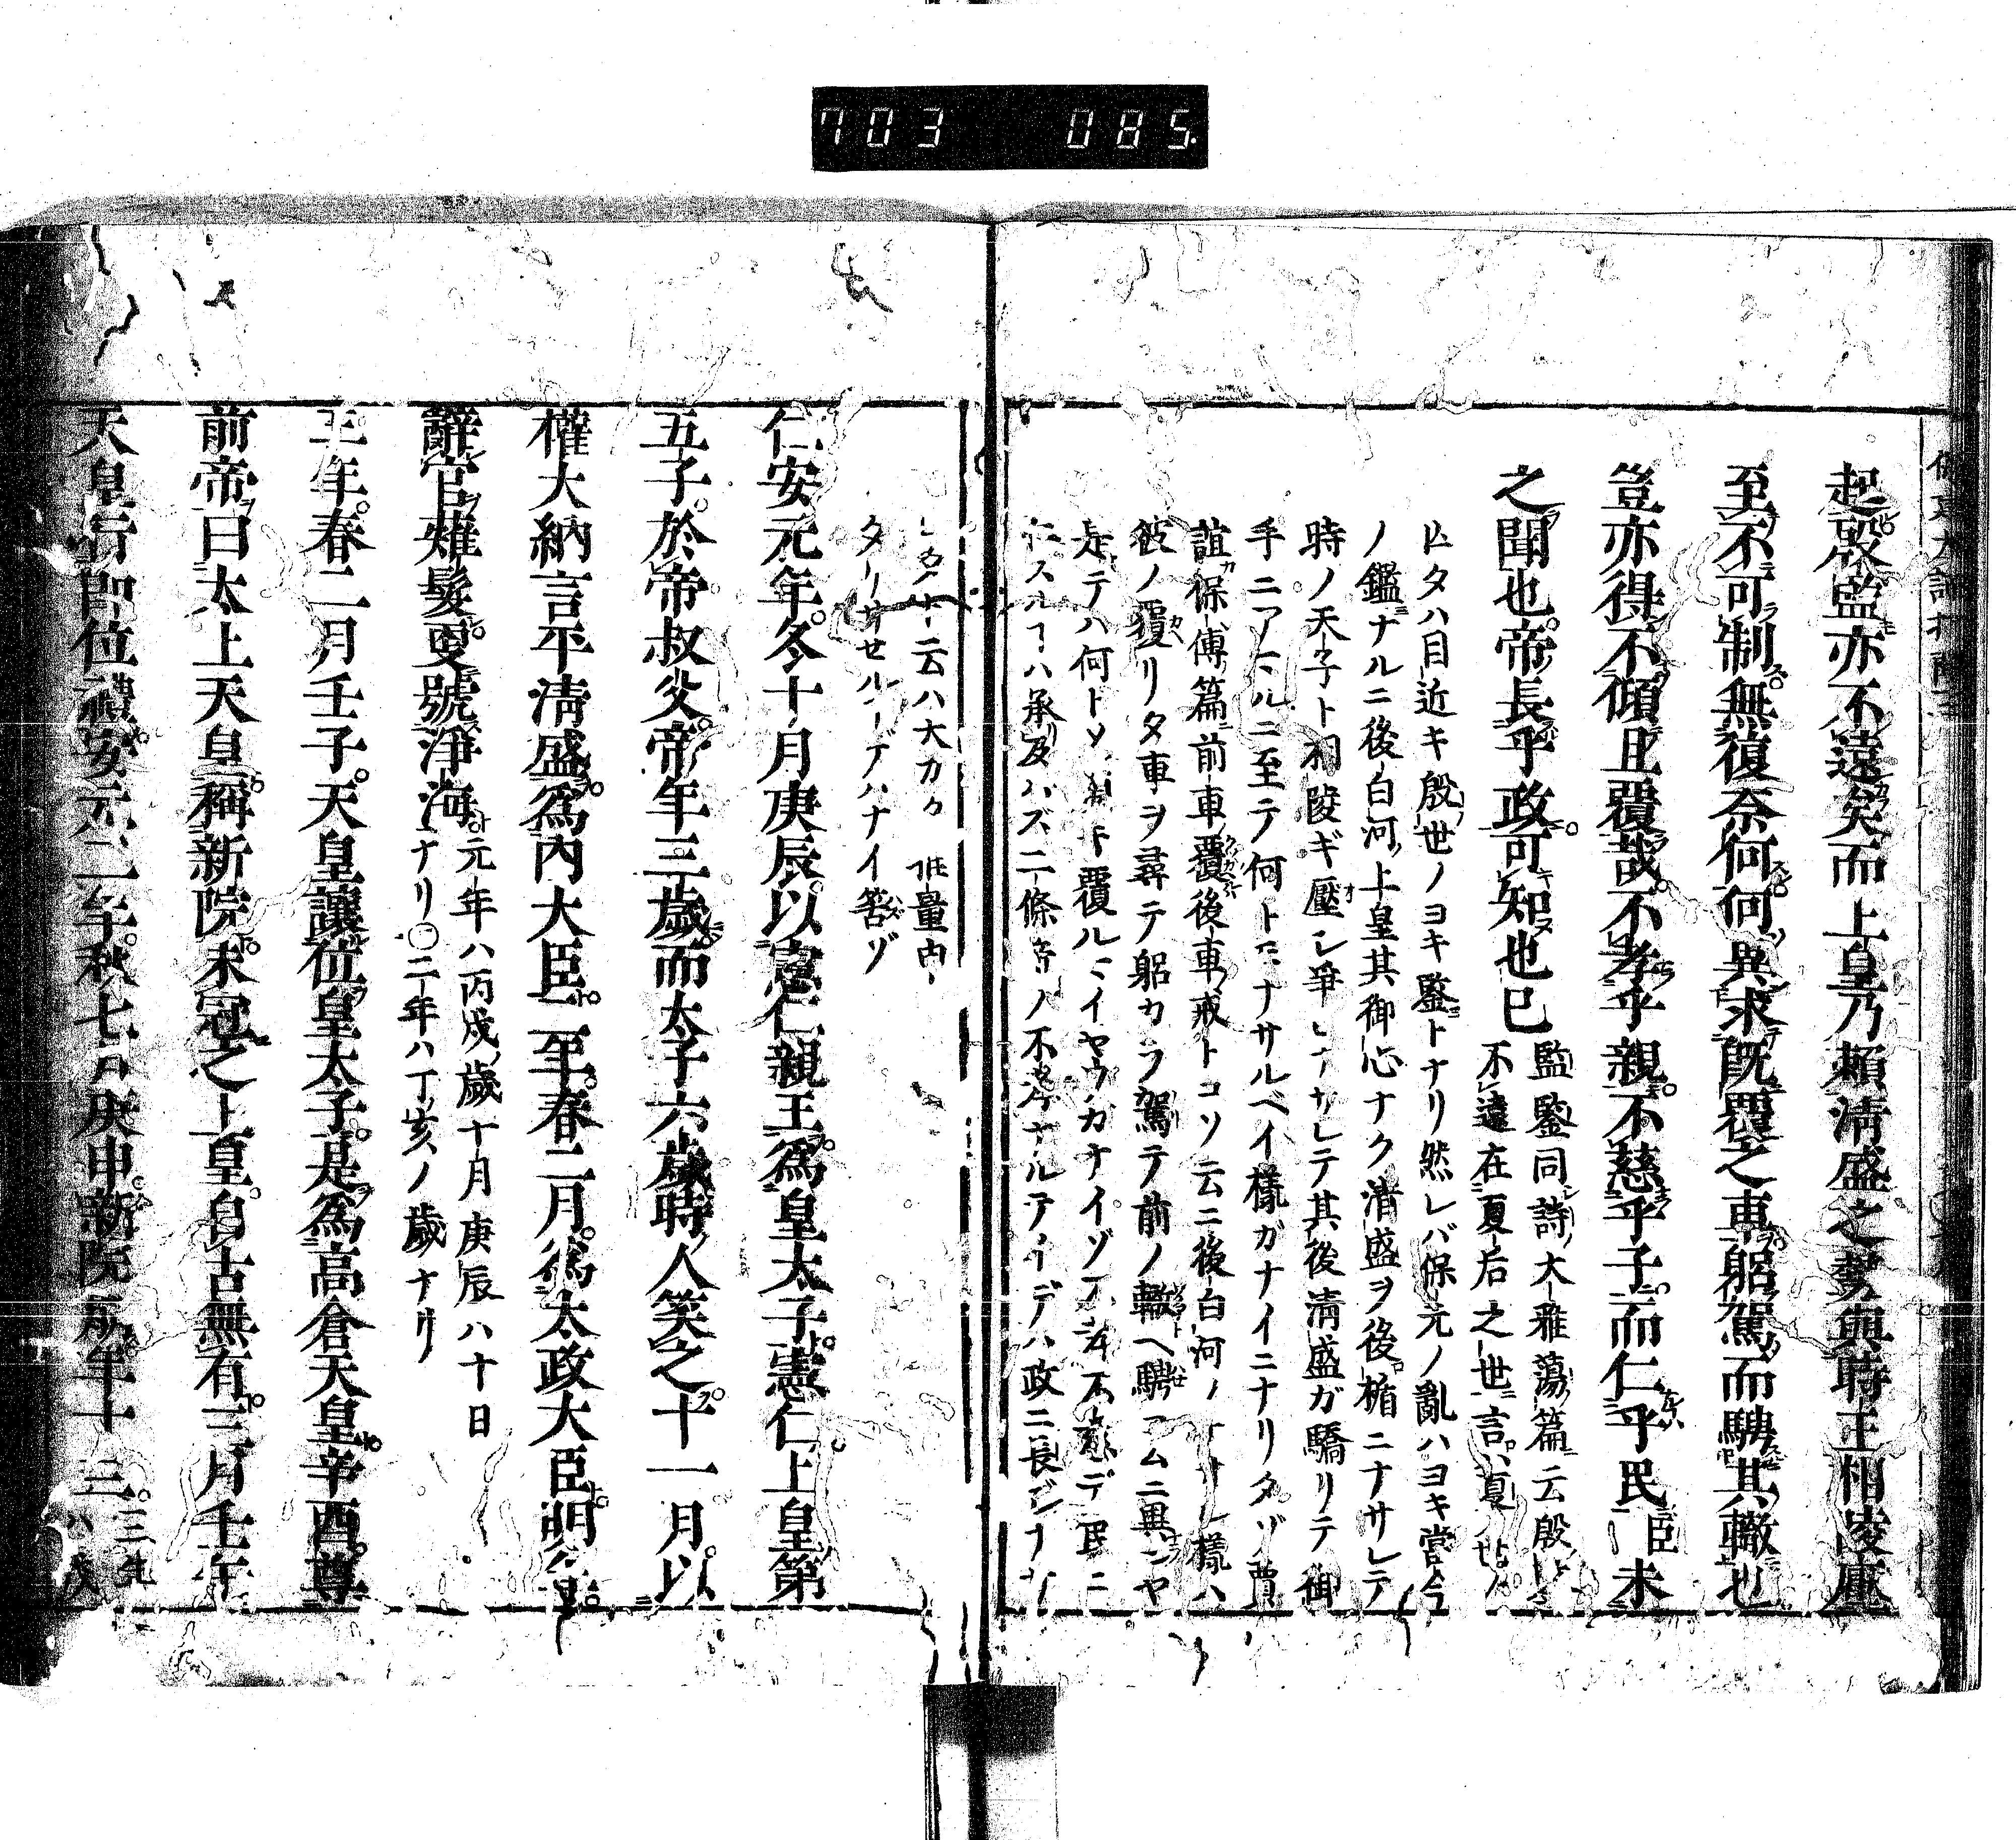 703 085
起殷監亦不遠矣而上皇乃頼淸盛之勢與時王相凌壓
至不可制無復奈何何異求旣覆之車躬駕而騁其轍也
豈亦得不傾且覆哉不孝乎親不慈乎子而仁乎民臣未
之聞也帝長乎政可知也已
監鑒同詩大雅蕩篇云殷
不遠在夏后之世言夏ノ世ノ
タハ目近キ殷世ノヨキ鑒トナリ然レバ保元ノ亂ハヨキ當今
ノ鑑ナルニ後白河上皇其御心ナク淸盛ヲ後楯ニナサレテ
時ノ天子ト相陵ギ壓シ爭ヒナサレテ其後淸盛ガ驕リテ御
手ニアハルニ至テ何トモナサルベイ樣ガナイニナリタゾ賈
誼保傅篇ニ前車覆後車戒トコソ云ニ後白河ノナサレ樣ハ
彼ノ覆リタ車ヲ尋テ躬カラ駕テ前ノ轍ヘ騁コムニ異ンヤ
是テハ何トメ傾キ覆ルマイヤウガナイゾ不孝不慈デ民ニ
仁スルコハ承及バズ二條帝ノ不孝ナルアイデハ政ニ長ジナ
レタト云ハ大カタ推量內
タリサセルコデハナイ筈ゾ
仁安元年冬十月庚辰以憲仁親王爲皇太子憲仁上皇第
五子於帝叔父帝年三歲而太子六歲時人笑之十一月以
權大納言平淸盛爲內大臣二年春二月爲太政大臣明年
辭官薙髮更號淨海
元年ハ丙戌歲十月庚辰ハ十日
ナリ〇二年ハ丁亥ノ歲ナリ
三年春二月壬子天皇讓位皇太子是爲高倉天皇辛酉尊
前帝曰太上天皇稱新院未冠之上皇自古無有三月壬午
天皇卽位禮安元二年秋七月庚申新院崩年十三